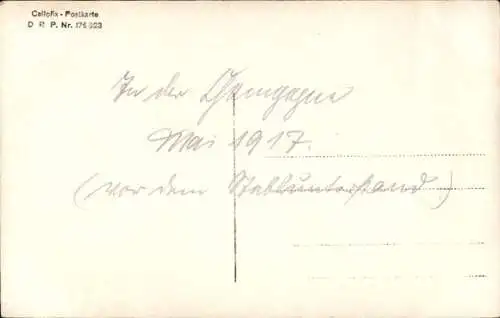 Cellofix - Postkarte
D. R. P. Nr. 176 323
In der Champagne
Mai 1917.
(vor dem Stabsunterstand)